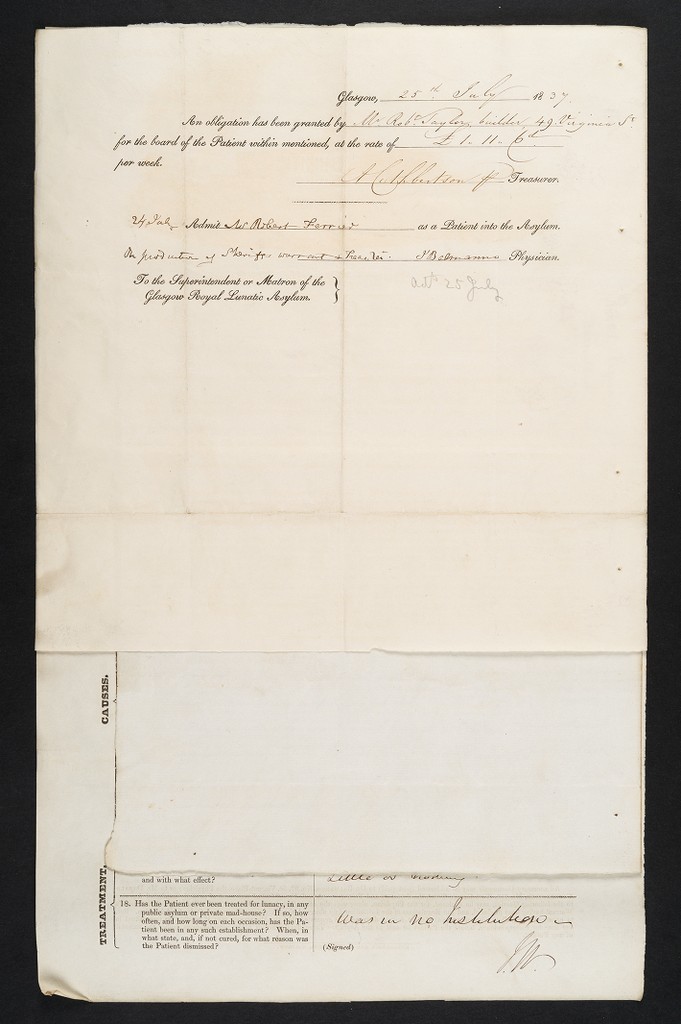 Glasgow, 25th July 1837.
An obligation has been granted by Mr Robt Taylor, builder 49 Virginia St
for the board of the Patient within mentioned, at the rate of £1. 11. 6d
per week.
A Cuthbertson Treasurer.
24 July Admit Mr Robert Ferrier as a Patient into the Asylum.
On production of Sheriff's warrant Physician.
To the Superintendent or Matron of the
Glasgow Royal Lunatic Asylum.
adt 25 July
CAUSES.
TREATMENT.
and with what effect?
Little or nothing
18. Has the Patient ever been treated for lunacy, in any
public asylum or private mad-house? If so, how
often, and how long on each occasion, has the Pa-
tient been in any such establishment? When, in
what state, and, if not cured, for what reason was
the Patient dismissed?
Was in no Institution
(Signed)